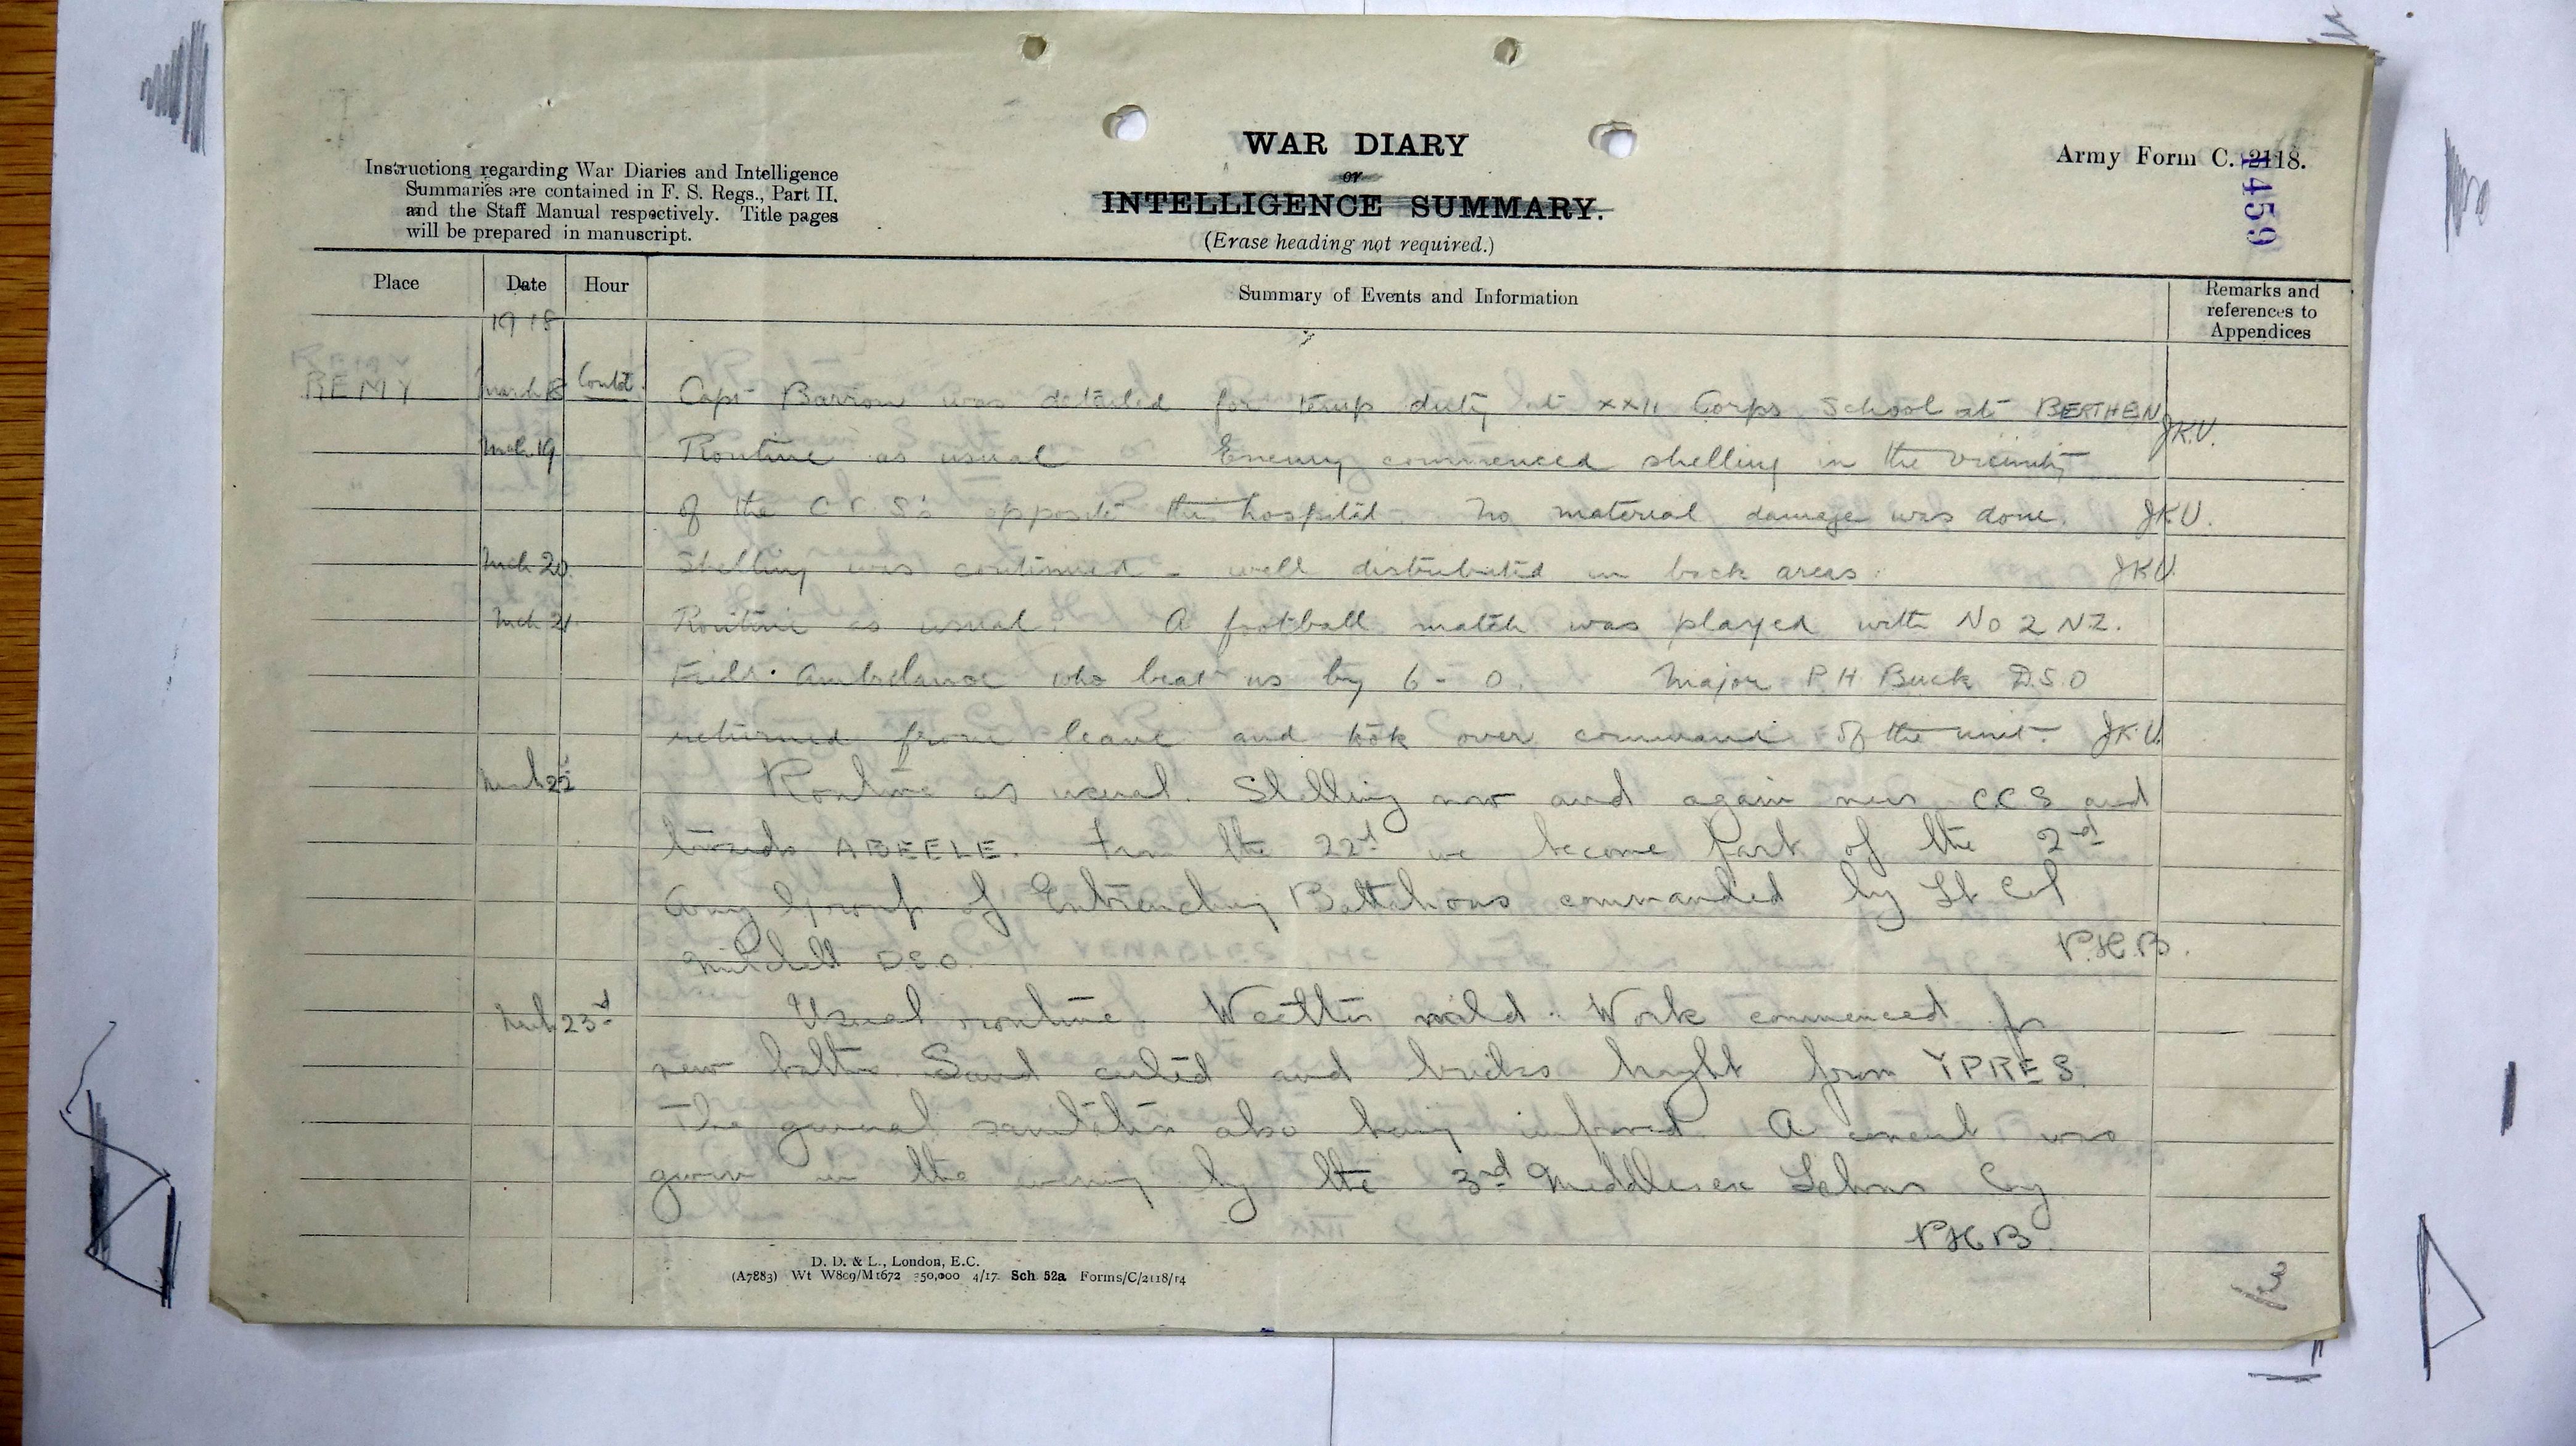 Instructions regarding War Diaries and Intelligence
Summaries are contained in F. S. Regs., Part II.
and the Staff Manual respectively. Title pages
will be prepared in manuscript.
WAR DIARY
or
INTELLIGENCE SUMMARY.
(Erase heading not required.)
Army Form C. 2118.
1459
Place Date Hour Summary of Events and Information Remarks and references to Appendices
1918
REMY March 18 Contd. Capt Barron was detailed for temp duty at XXII Corps School at BERTHEN J.K.V.
Mch 19 Routine as usual Enemy commenced shelling in the vicinity
of the C.C.S's opposite this hospital. No material damage was done. J.K.V.
Mch 20 Shelling was continued - well distributed in back areas. J.K.V.
Mch 21 Routine as usual. A football match was played with No 2 N.Z.
Field Ambulance who beat us by 6 - 0. Major P H Buck D.S.O
returned from leave and took over command of the unit. J.K.V.
March 22 Routine as usual. Shelling now and again near C.C.S and
towards ABEELE. From the 22nd we become part of the 2nd
Army Group of Entrenching Battalions commanded by Lt Col
Mitchell D.S.O. P.H.B.
March 23rd Usual routine. Weather mild. Work commenced for
new baths. Sand carted and bricks brought from YPRES.
The general sanitation also being improved. A concert was
given in the evening by the 3rd Middlesex Labour Coy
P.H.B.
D. D. & L., London, E.C.
(A7883) Wt W809/M1672 350,000 4/17 Sch 52a Forms/C/2118/14
13